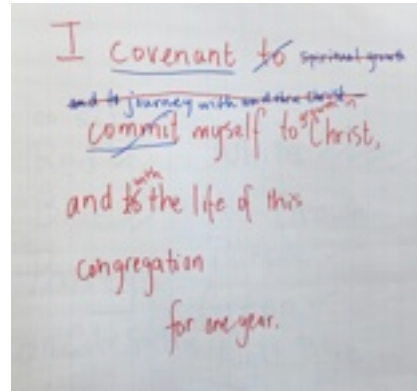 I covenant to spiritual growth
and to journey with and
commit myself to Christ,
and to with the life of this
congregation
for one year.